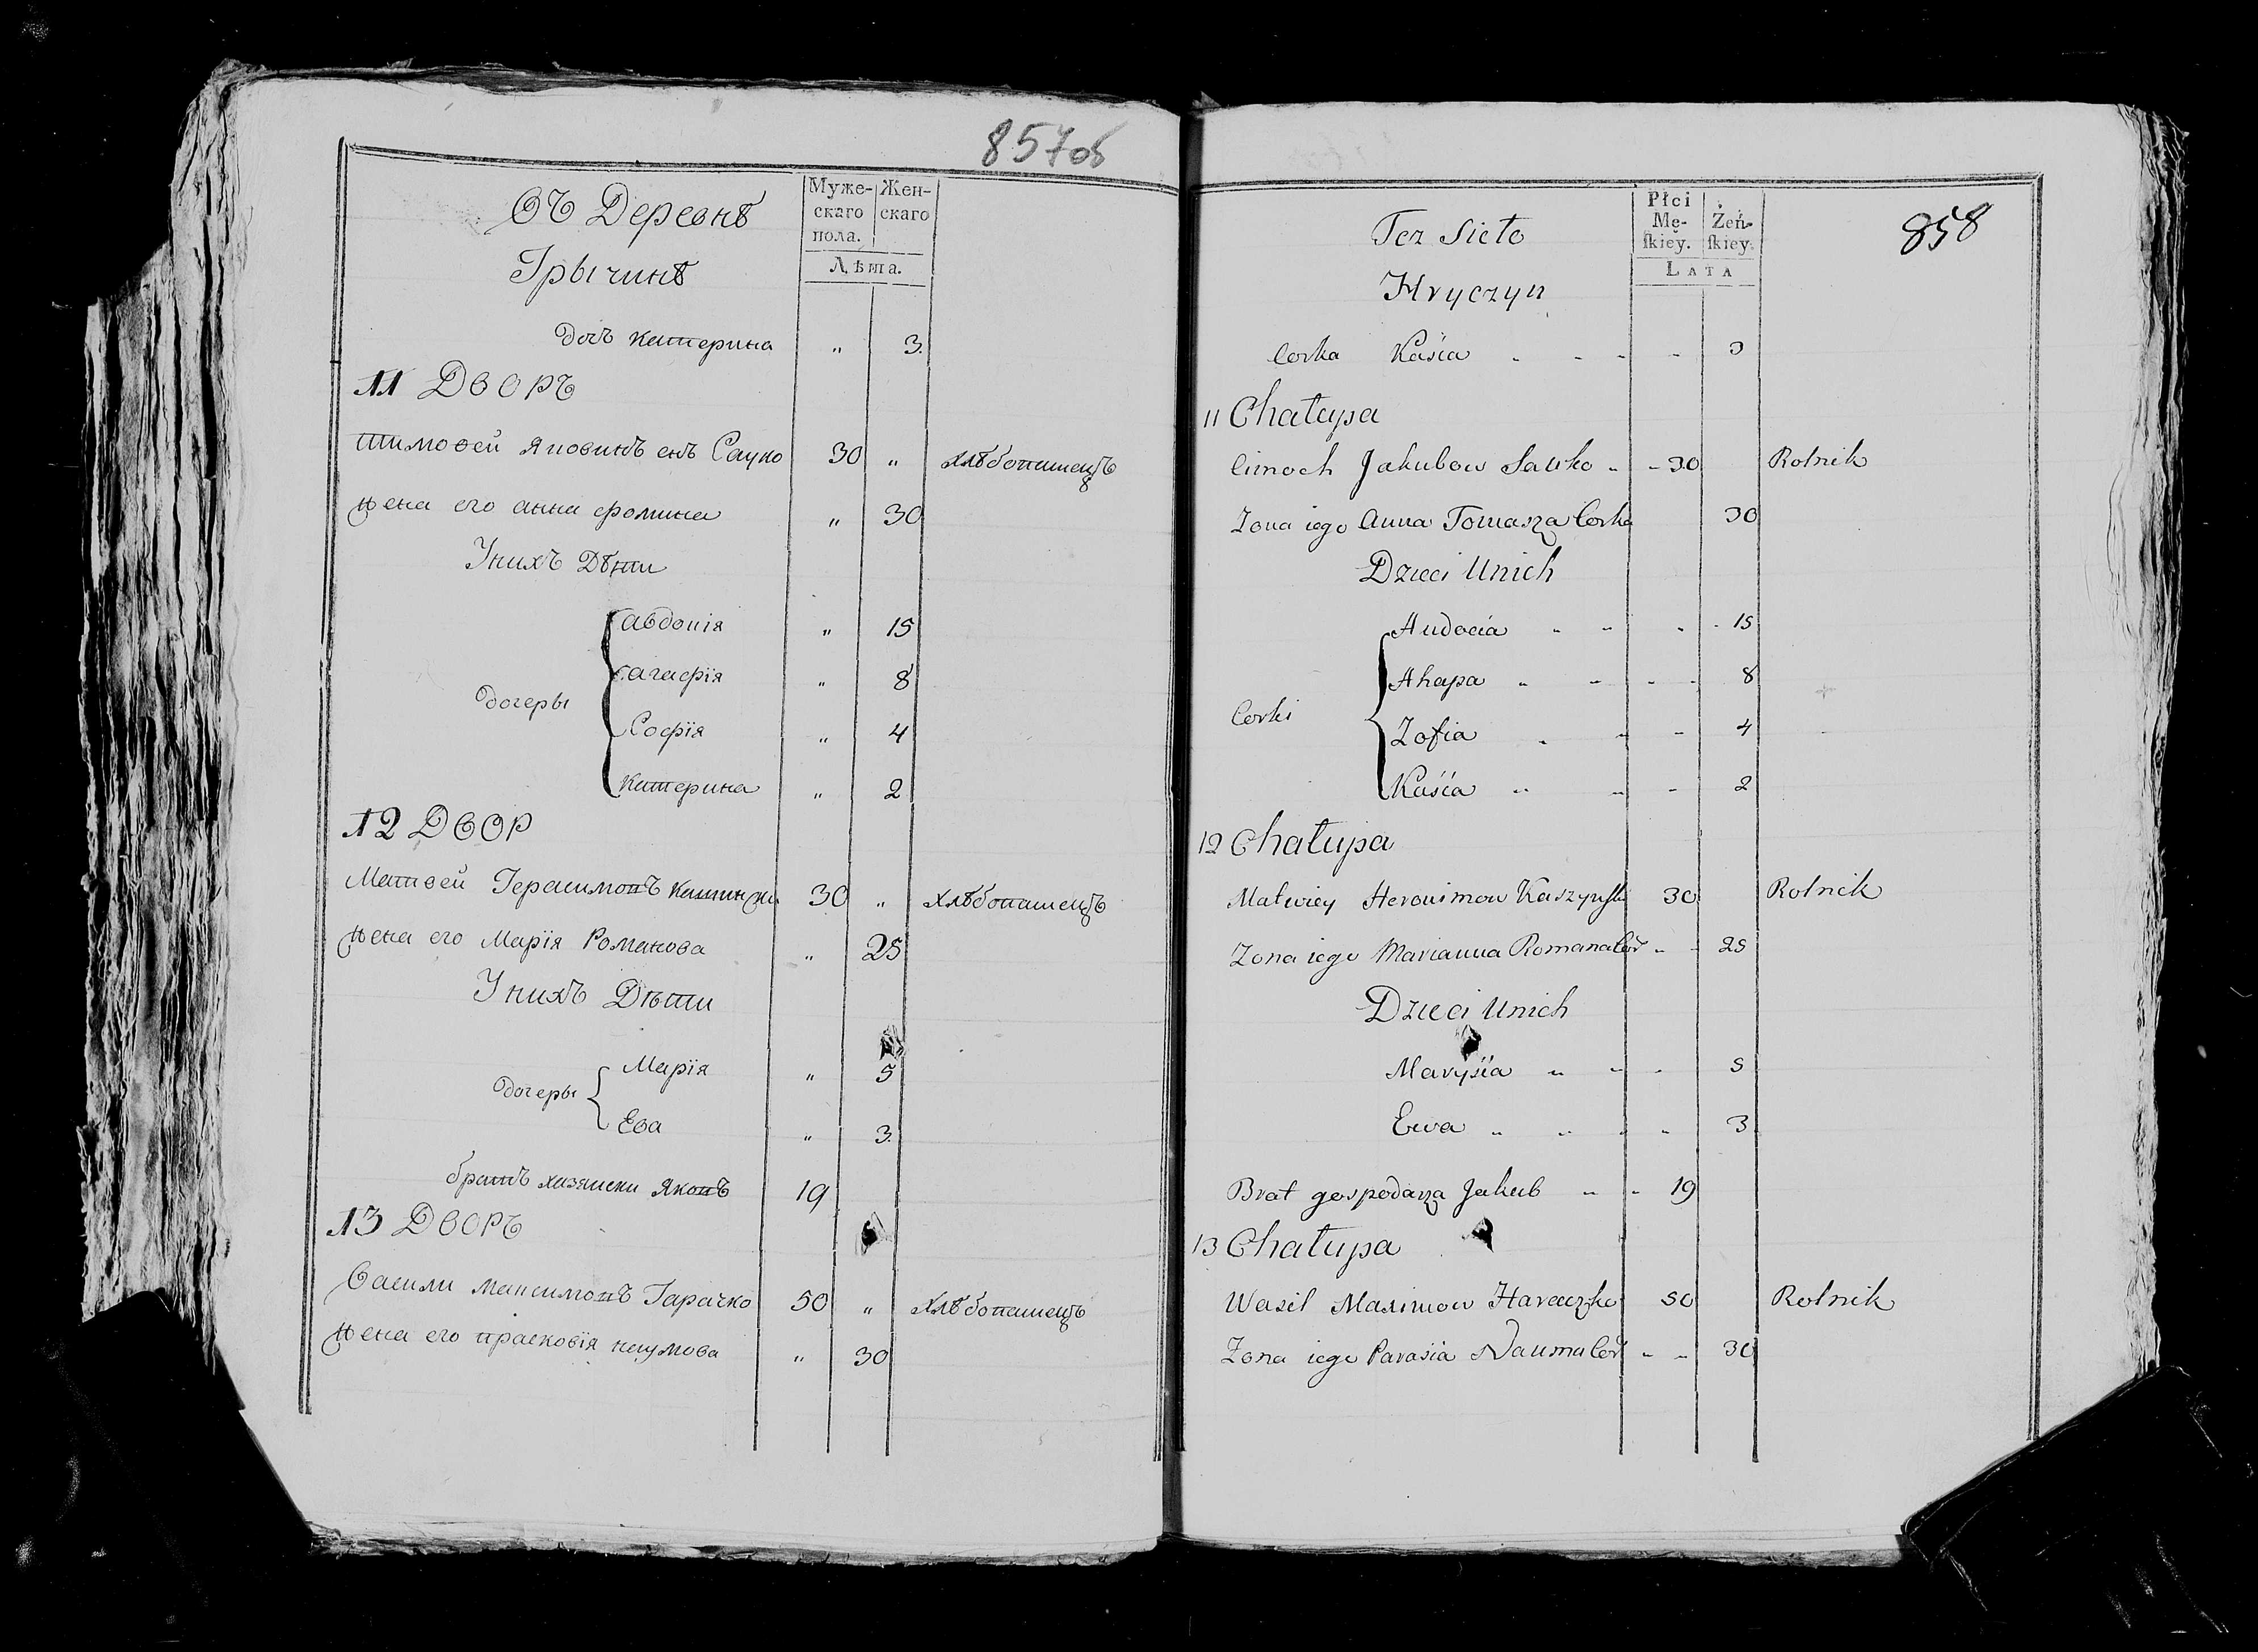 857об
Въ Деревнѣ
Грычинѣ
Муже-
скаго
пола.
Жен-
скаго
Лѣта.
дочь катерина " 3
11 Дворъ
тимофей яковинъ снъ Сауко 30 " хлѣбопашецъ
жена его анна фомина " 30
Унихъ Дѣти
дочеры
авдошія " 15
агафія " 8
Софія " 4
катерина " 2
12 Двор
Матвей Герасимовъ 30 " хлѣбопашецъ
жена его Марія Романова " 25
Унихъ Дѣти
дочеры
Марія " 5
Ева " 3
братъ Яковъ 19
13 Дворъ
Васили максимовъ Гарачко 50 " хлѣбопашецъ
жена его прасковія наумова " 30
858
Tez Sieło
Hryczyn
Płci
Mę-
ſkiey.
Żeń-
ſkiey.
LATA
Corka Kasia 3
11 Chałupa
Cimoch Jakubow Sauko 30 Rolnik
Zona iego Anna Tomasza Corka 30
Dzieci Unich
Corki
Audocia 15
Ahapa 8
Zofia 4
Kasia 2
12 Chałupa
Matwiey Heronimow Kaszynski 30 Rolnik
Zona iego Marianna Romana Cor 25
Dzieci Unich
Marysia 5
Ewa 3
Brat gospodarza Jakub 19
13 Chałupa
Wasil Maximow Haraczko 50 Rolnik
Zona iego Parasia Nauma Cor 30